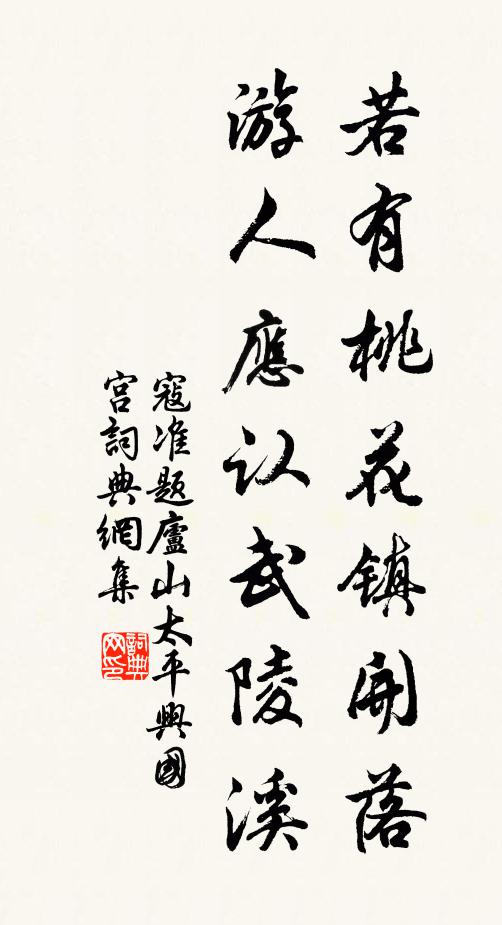 若有桃花镇開落
游人應认武陵溪
寇准題廬山太平興國
宮詞典網集
詞典网印